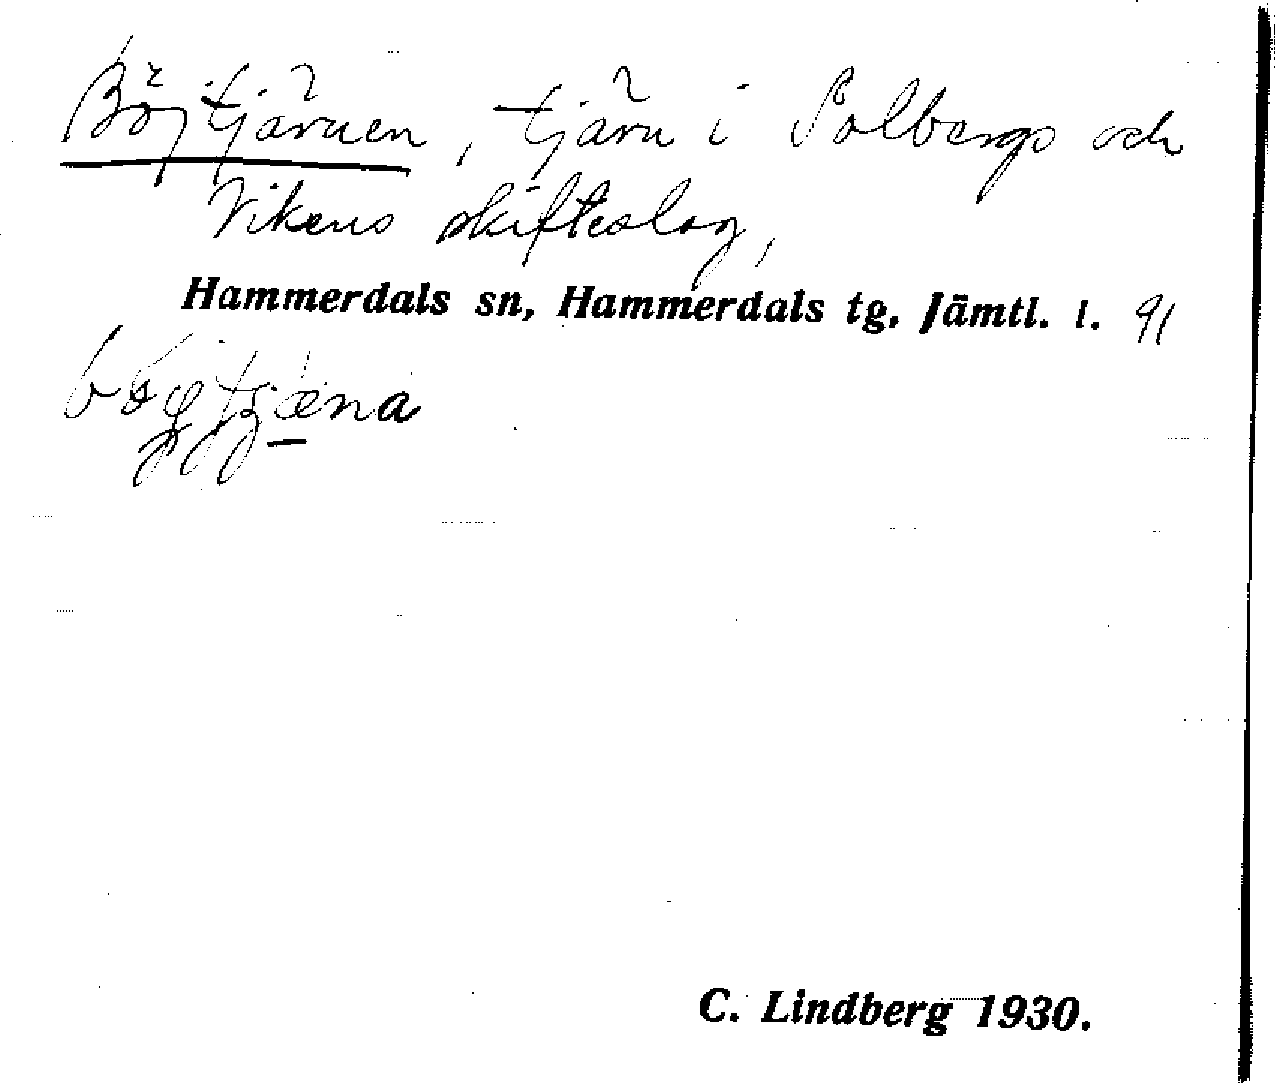 Böjtjärnen, tjärn i Solbergs och
Vikens skifteslag,
Hammerdals sn, Hammerdals tg. Jämtl. l. 91
C. Lindberg 1930.